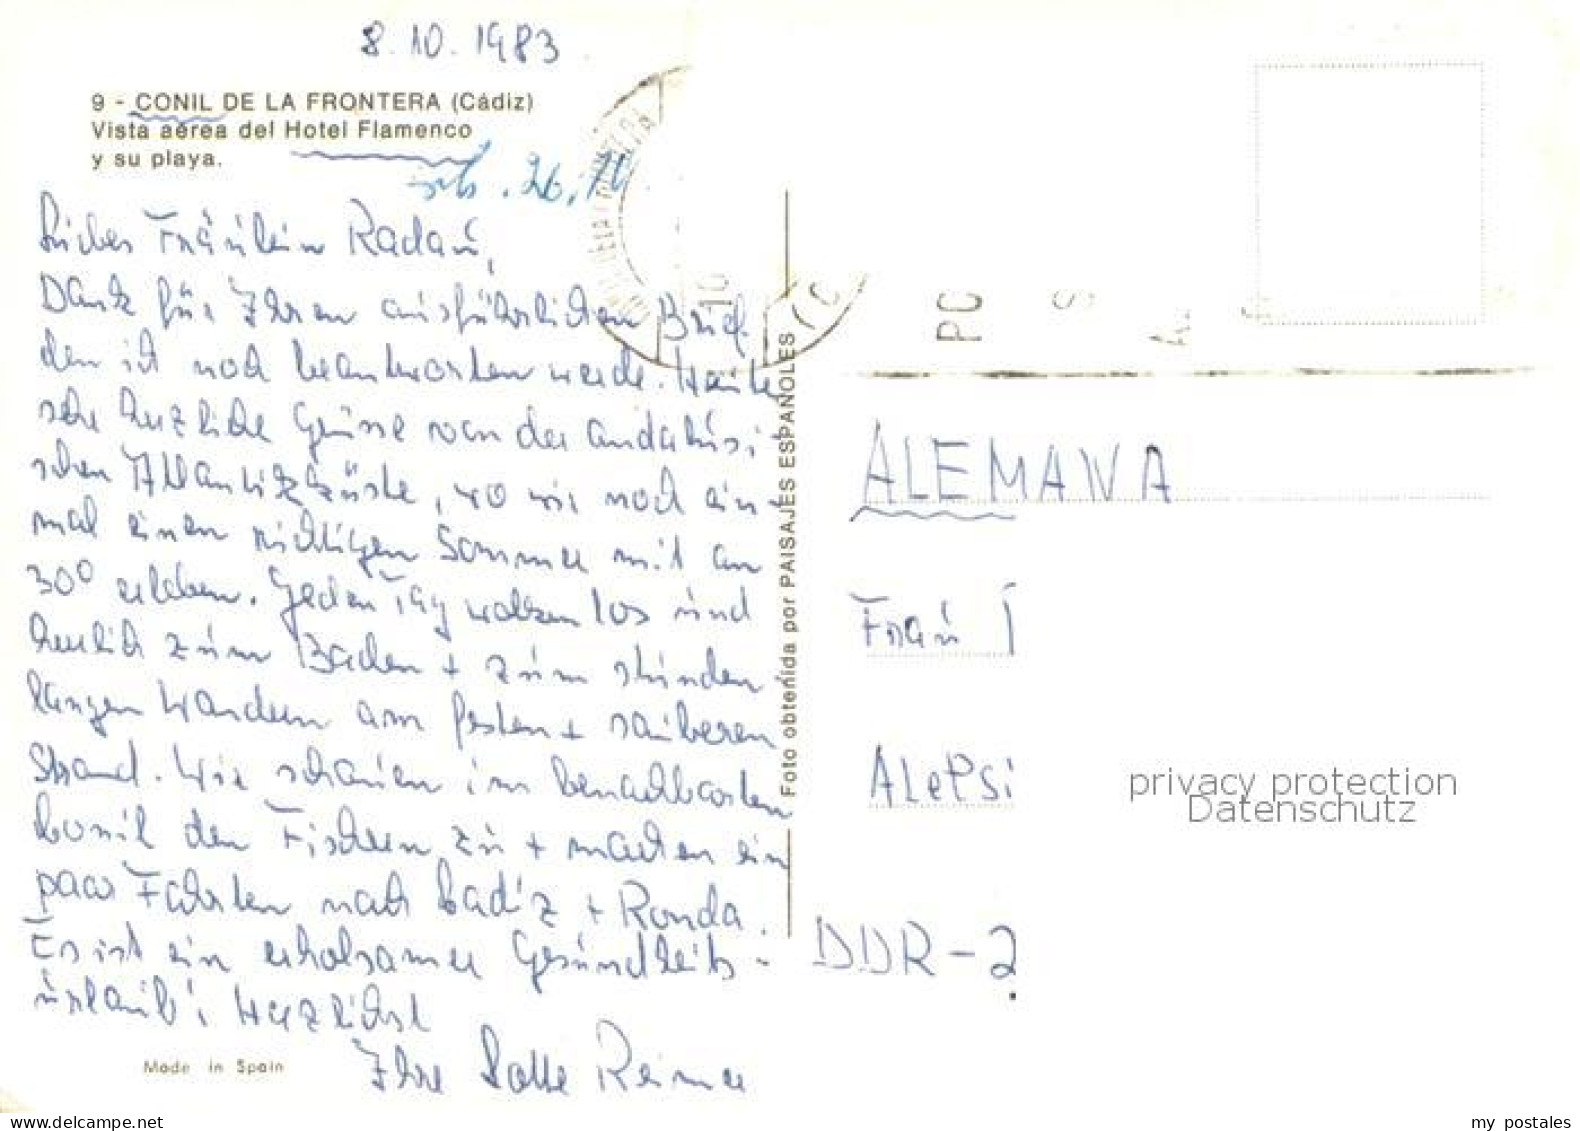 8.10.1983
9 - CONIL DE LA FRONTERA (Cádiz)
Vista aérea del Hotel Flamenco
y su playa.
Liebes Fräulein Radau,
Dank für Ihren ausführlichen Brief.
den ich noch beantworten werde. Heute
sehr herzliche Grüsse von der andalusi-
schen Atlantikküste, wo wir noch ein-
mal einen richtigen Sommer mit an
30° erleben. Jeden Tag wolkenlos und
herrlich zum Baden + zum stunden
langen Wandern am festen + sauberen
Strand. Wir schauen im benachbarten
Conil den Fischern zu + machen ein
paar Fahrten nach Cadiz + Ronda.
Es ist ein erholsamer Gesundheits-
urlaub! Herzlichst
Ihre Reimer
Made in Spain
Foto obtenida por PAISAJES ESPAÑOLES
ALEMANIA
Frau
DDR-2
privacy protection
Datenschutz
my postales